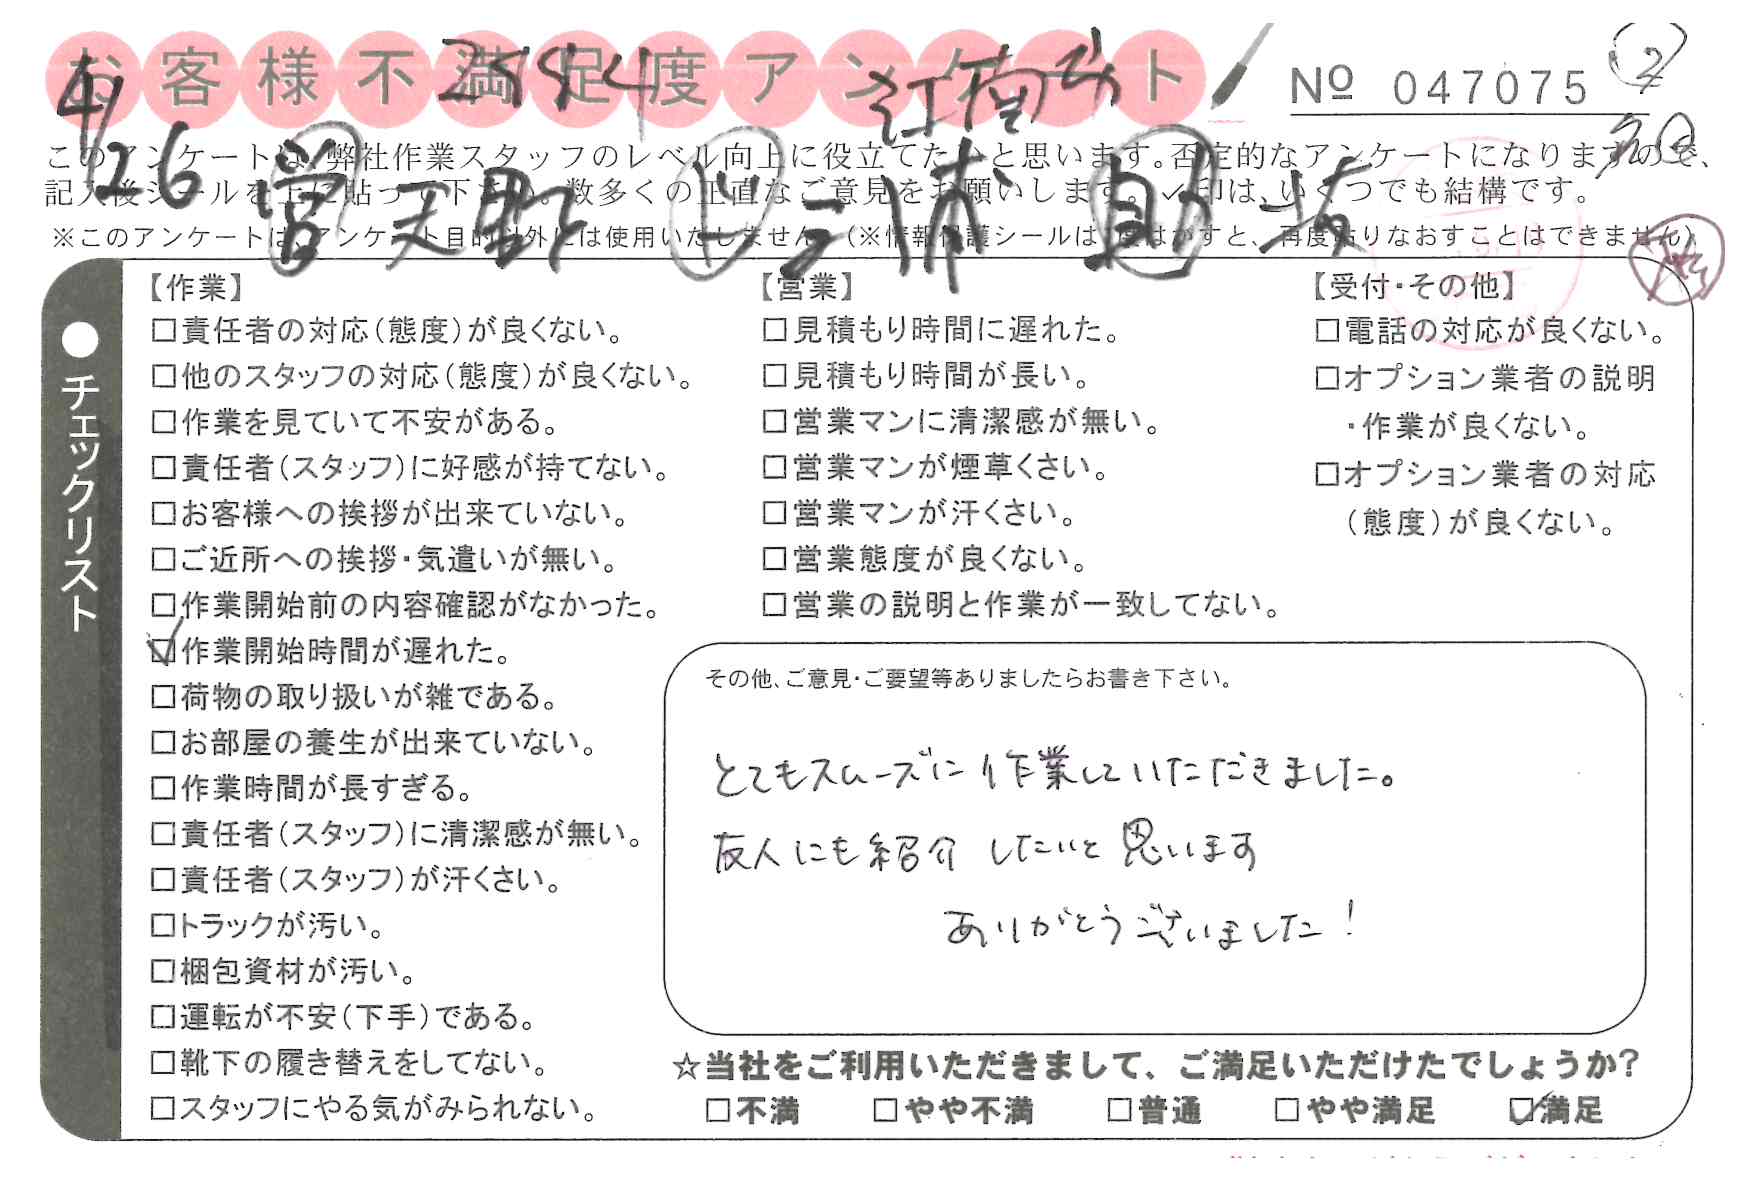 お客様不満足度アンケート
2544
江南分
№ 047075
②
4/26
20
このアンケートは、弊社作業スタッフのレベル向上に役立てたいと思います。否定的なアンケートになりますので、
記入後シールを上に貼って下さい。数多くの正直なご意見をお願いします。✓印は、いくつでも結構です。
※このアンケートは、アンケート目的以外には使用いたしません。(※情報保護シールは1度はがすと、再度貼りなおすことはできません)
営 天野
三浦
【作業】
□責任者の対応(態度)が良くない。
□他のスタッフの対応(態度)が良くない。
□作業を見ていて不安がある。
□責任者(スタッフ)に好感が持てない。
□お客様への挨拶が出来ていない。
□ご近所への挨拶・気遣いが無い。
□作業開始前の内容確認がなかった。
☑作業開始時間が遅れた。
□荷物の取り扱いが雑である。
□お部屋の養生が出来ていない。
□作業時間が長すぎる。
□責任者(スタッフ)に清潔感が無い。
□責任者(スタッフ)が汗くさい。
□トラックが汚い。
□梱包資材が汚い。
□運転が不安(下手)である。
□靴下の履き替えをしてない。
□スタッフにやる気がみられない。
【営業】
□見積もり時間に遅れた。
□見積もり時間が長い。
□営業マンに清潔感が無い。
□営業マンが煙草くさい。
□営業マンが汗くさい。
□営業態度が良くない。
□営業の説明と作業が一致してない。
【受付・その他】
□電話の対応が良くない。
□オプション業者の説明
・作業が良くない。
□オプション業者の対応
(態度)が良くない。
●チェックリスト
その他、ご意見・ご要望等ありましたらお書き下さい。
とてもスムーズに作業していただきました。
友人にも紹介したいと思います
ありがとうございました!
☆当社をご利用いただきまして、ご満足いただけたでしょうか?
□不満 □やや不満 □普通 □やや満足 ☑満足